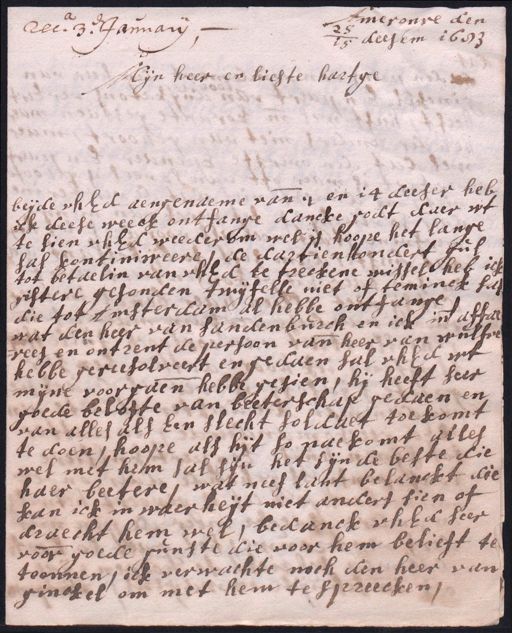 rec.ᵃ 3.ᵈ January, –
Ameronre den
25/15 deesem 1683
Mijn heer en liefste hartge
beijde uhEd aengename van 4 en 14 deeser heb
ick deese weeck ontfange dancke godt daer wt
te sien uhEd weederom wel is hoope het lange
sal kontiniweere, de dartienhondert gul
tot betaelin van uhEd te treckene wissel heb ick
gistere gesonden twijfelle niet of teminck sal
die tot Amsterdam al hebbe ontfange
wat den heer van sandenburck en ick in
en ontrent de persoon van heer van
hebbe geresolveert en gedaen sal uhEd wt
mijne voorgaen hebbe gesien, hij heeft seer
goede belofte van beeterschap gedaen en
van alles als Een slecht soldaet toekomt
te doen, hoope als hijt so naekomt alles
wel met hem sal sijn het sijnde beste die
haer beetere, wat nees lant belanckt die
kan ick in waerheijt niet anders sien of
draecht hem wel, bedanck uhEd seer
voor goede gunste die voor hem belieft te
toonnen, ick verwachte noch den heer van
ginckel om met hem te spreecken,